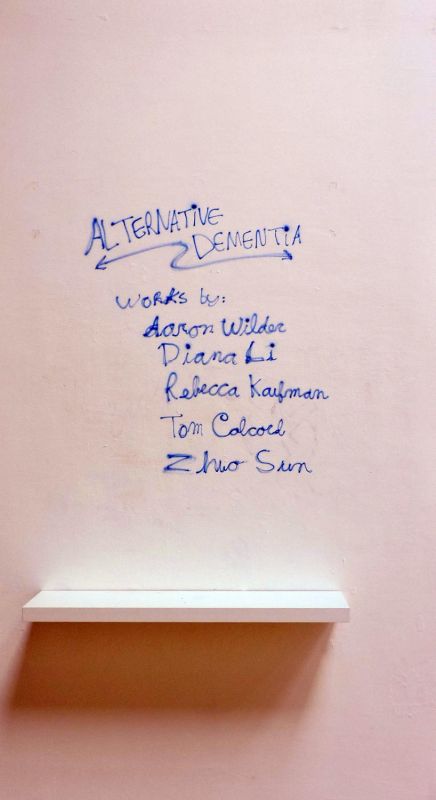 ALTERNATIVE
DEMENTIA
WORKS by:
Aaron Wilder
Diana Li
Rebecca Kaufman
Tom Colcord
Zhuo Sun